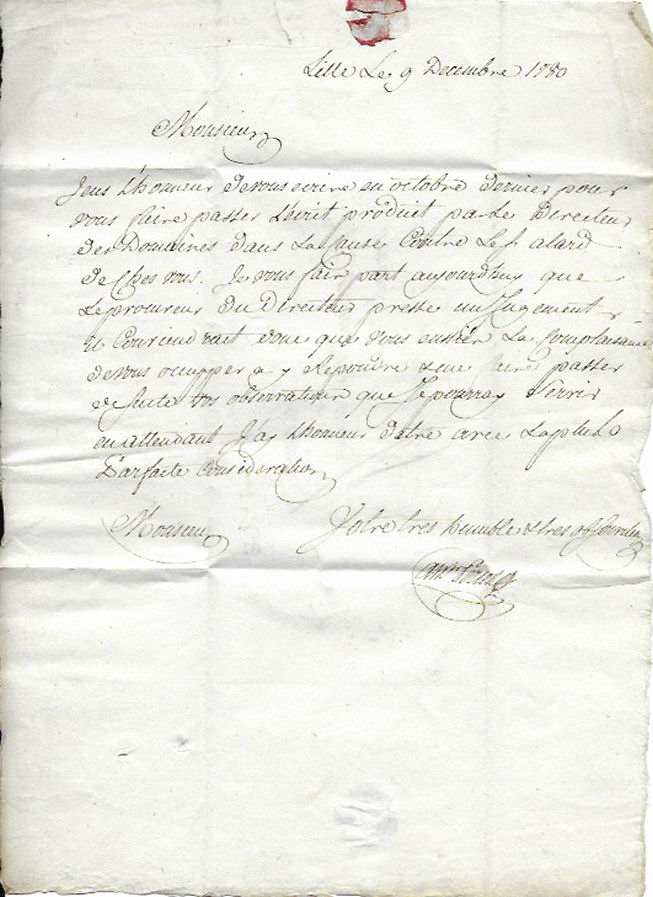 Lille Le 9 Decembre 1780
Monsieur
Jeus Lhonneur de vous ecrire en octobre dernier pour
vous faire passer Lecrit produit par Le Directeur
des Domaines dans La Cause Contre Le Sr alard
de Ches vous. Je vous fais part aujourdhuy que
Le procureur du Directeur presse un Jugement
il Conviendrait donc que vous eussiez La Complaisance
de vous occupper a y Repondre & me faire passer
de suite vos observations que Je pourray servir
en attendant J'ay Lhonneur detre avec La plus
Parfaite Consideration
Monsieur
Votre tres humble & tres